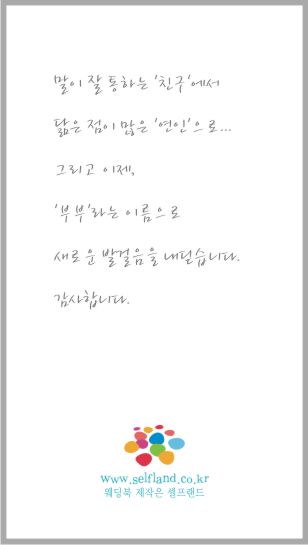 말이 잘 통하는 '친구'에서
닮은 점이 많은 '연인'으로...
그리고 이제,
'부부'라는 이름으로
새로운 발걸음을 내딛습니다.
감사합니다.
www.selfland.co.kr
웨딩북 제작은 셀프랜드